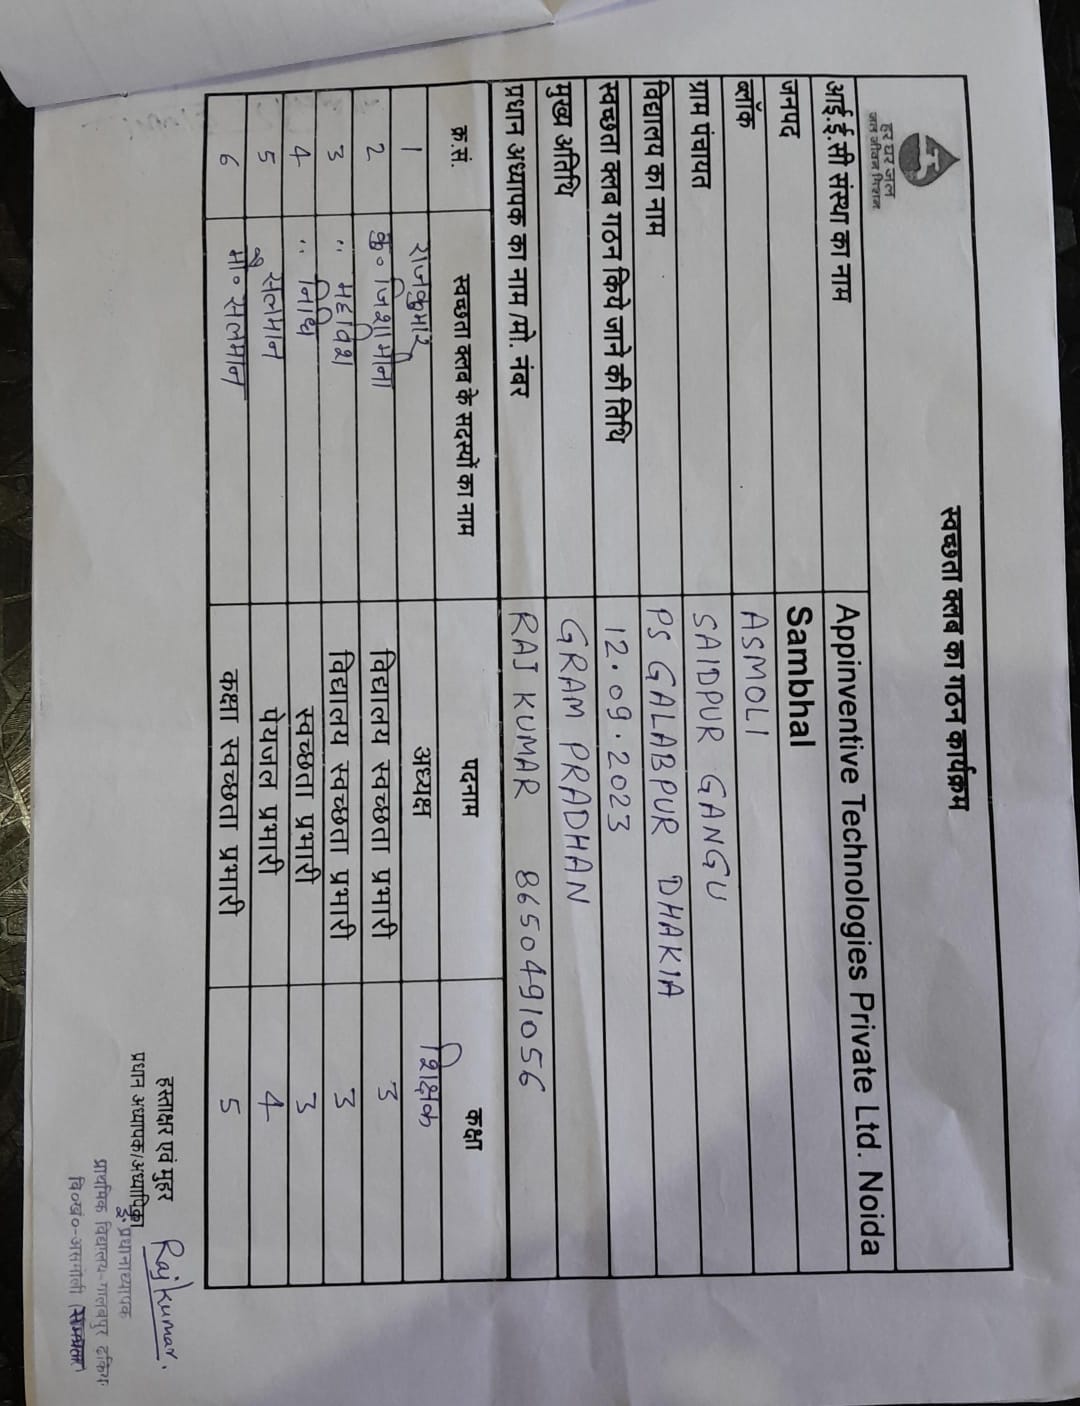 हर घर जल
जल जीवन मिशन
स्वच्छता क्लब का गठन कार्यक्रम
आई.ई.सी संस्था का नाम Appinventive Technologies Private Ltd. Noida
जनपद Sambhal
ब्लॉक ASMOLI
ग्राम पंचायत SAIDPUR GANGU
विद्यालय का नाम PS GALABPUR DHAKIA
स्वच्छता क्लब गठन किये जाने की तिथि 12.09.2023
मुख्य अतिथि GRAM PRADHAN
प्रधान अध्यापक का नाम /मो. नंबर RAJ KUMAR 8650491056
क्र.सं. स्वच्छता क्लब के सदस्यों का नाम पदनाम कक्षा
1 राजकुमार अध्यक्ष शिक्षक
2 कु० विद्यालय स्वच्छता प्रभारी 3
3 " महविश विद्यालय स्वच्छता प्रभारी 3
4 " निधि स्वच्छता प्रभारी 3
5 सलमान पेयजल प्रभारी 4
6 मो० सलमान कक्षा स्वच्छता प्रभारी 5
हस्ताक्षर एवं मुहर
प्रधान अध्यापक/अध्यापिका Rajkumar.
इं. प्रधानाध्यापक
प्राथमिक विद्यालय-गालबपुर ढकिया
वि०ख०-असमोली (सम्भल)